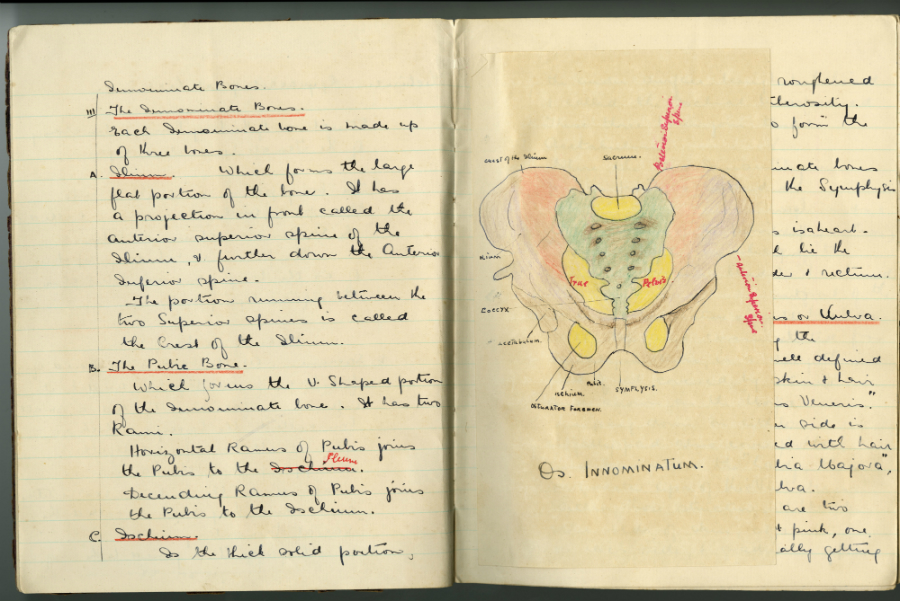 Innominate Bones.
III The Innominate Bones.
Each Innominate bone is made up
of three bones.
A. Ilium. Which forms the large
flat portion of the bone. It has
a projection in front called the
anterior superior spine of the
Ilium, & further down the Anterior
Inferior spine.
The portion running between the
two Superior spines is called
the Crest of the Ilium.
B. The Pubic Bone.
Which forms the V. Shaped portion
of the Innominate bone. It has two
Rami.
Horizontal Ramus of Pubis joins
the Pubis to the Ischium. Ilium
Decending Ramus of Pubis joins
the Pubis to the Ischium.
C. Ischium
Is the thick solid portion,
Posterior Superior
Spine
crest of the Ilium
Sacrum.
Ilium
True
Pelvis
Anterior Superior
Spine
Coccyx
Acetabulum.
Pubis.
Ischium.
SYMPHYSIS.
Obturator Foramen.
Os. INNOMINATUM.
roughened
form the
bones
the Symphysis
is a heart-
lie the
& rectum.
or Vulva.
the
well defined
skin & hair
Veneris."
side is
with hair
Majora",
are two
pink, one
getting